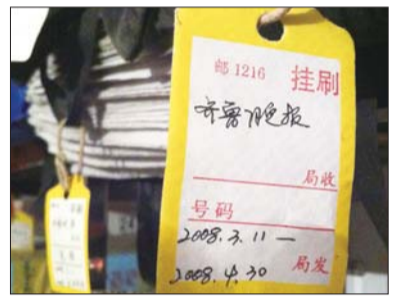 邮1216 挂刷
齐鲁晚报
局收
号码
2008.3.11—
2008.4.30 局发